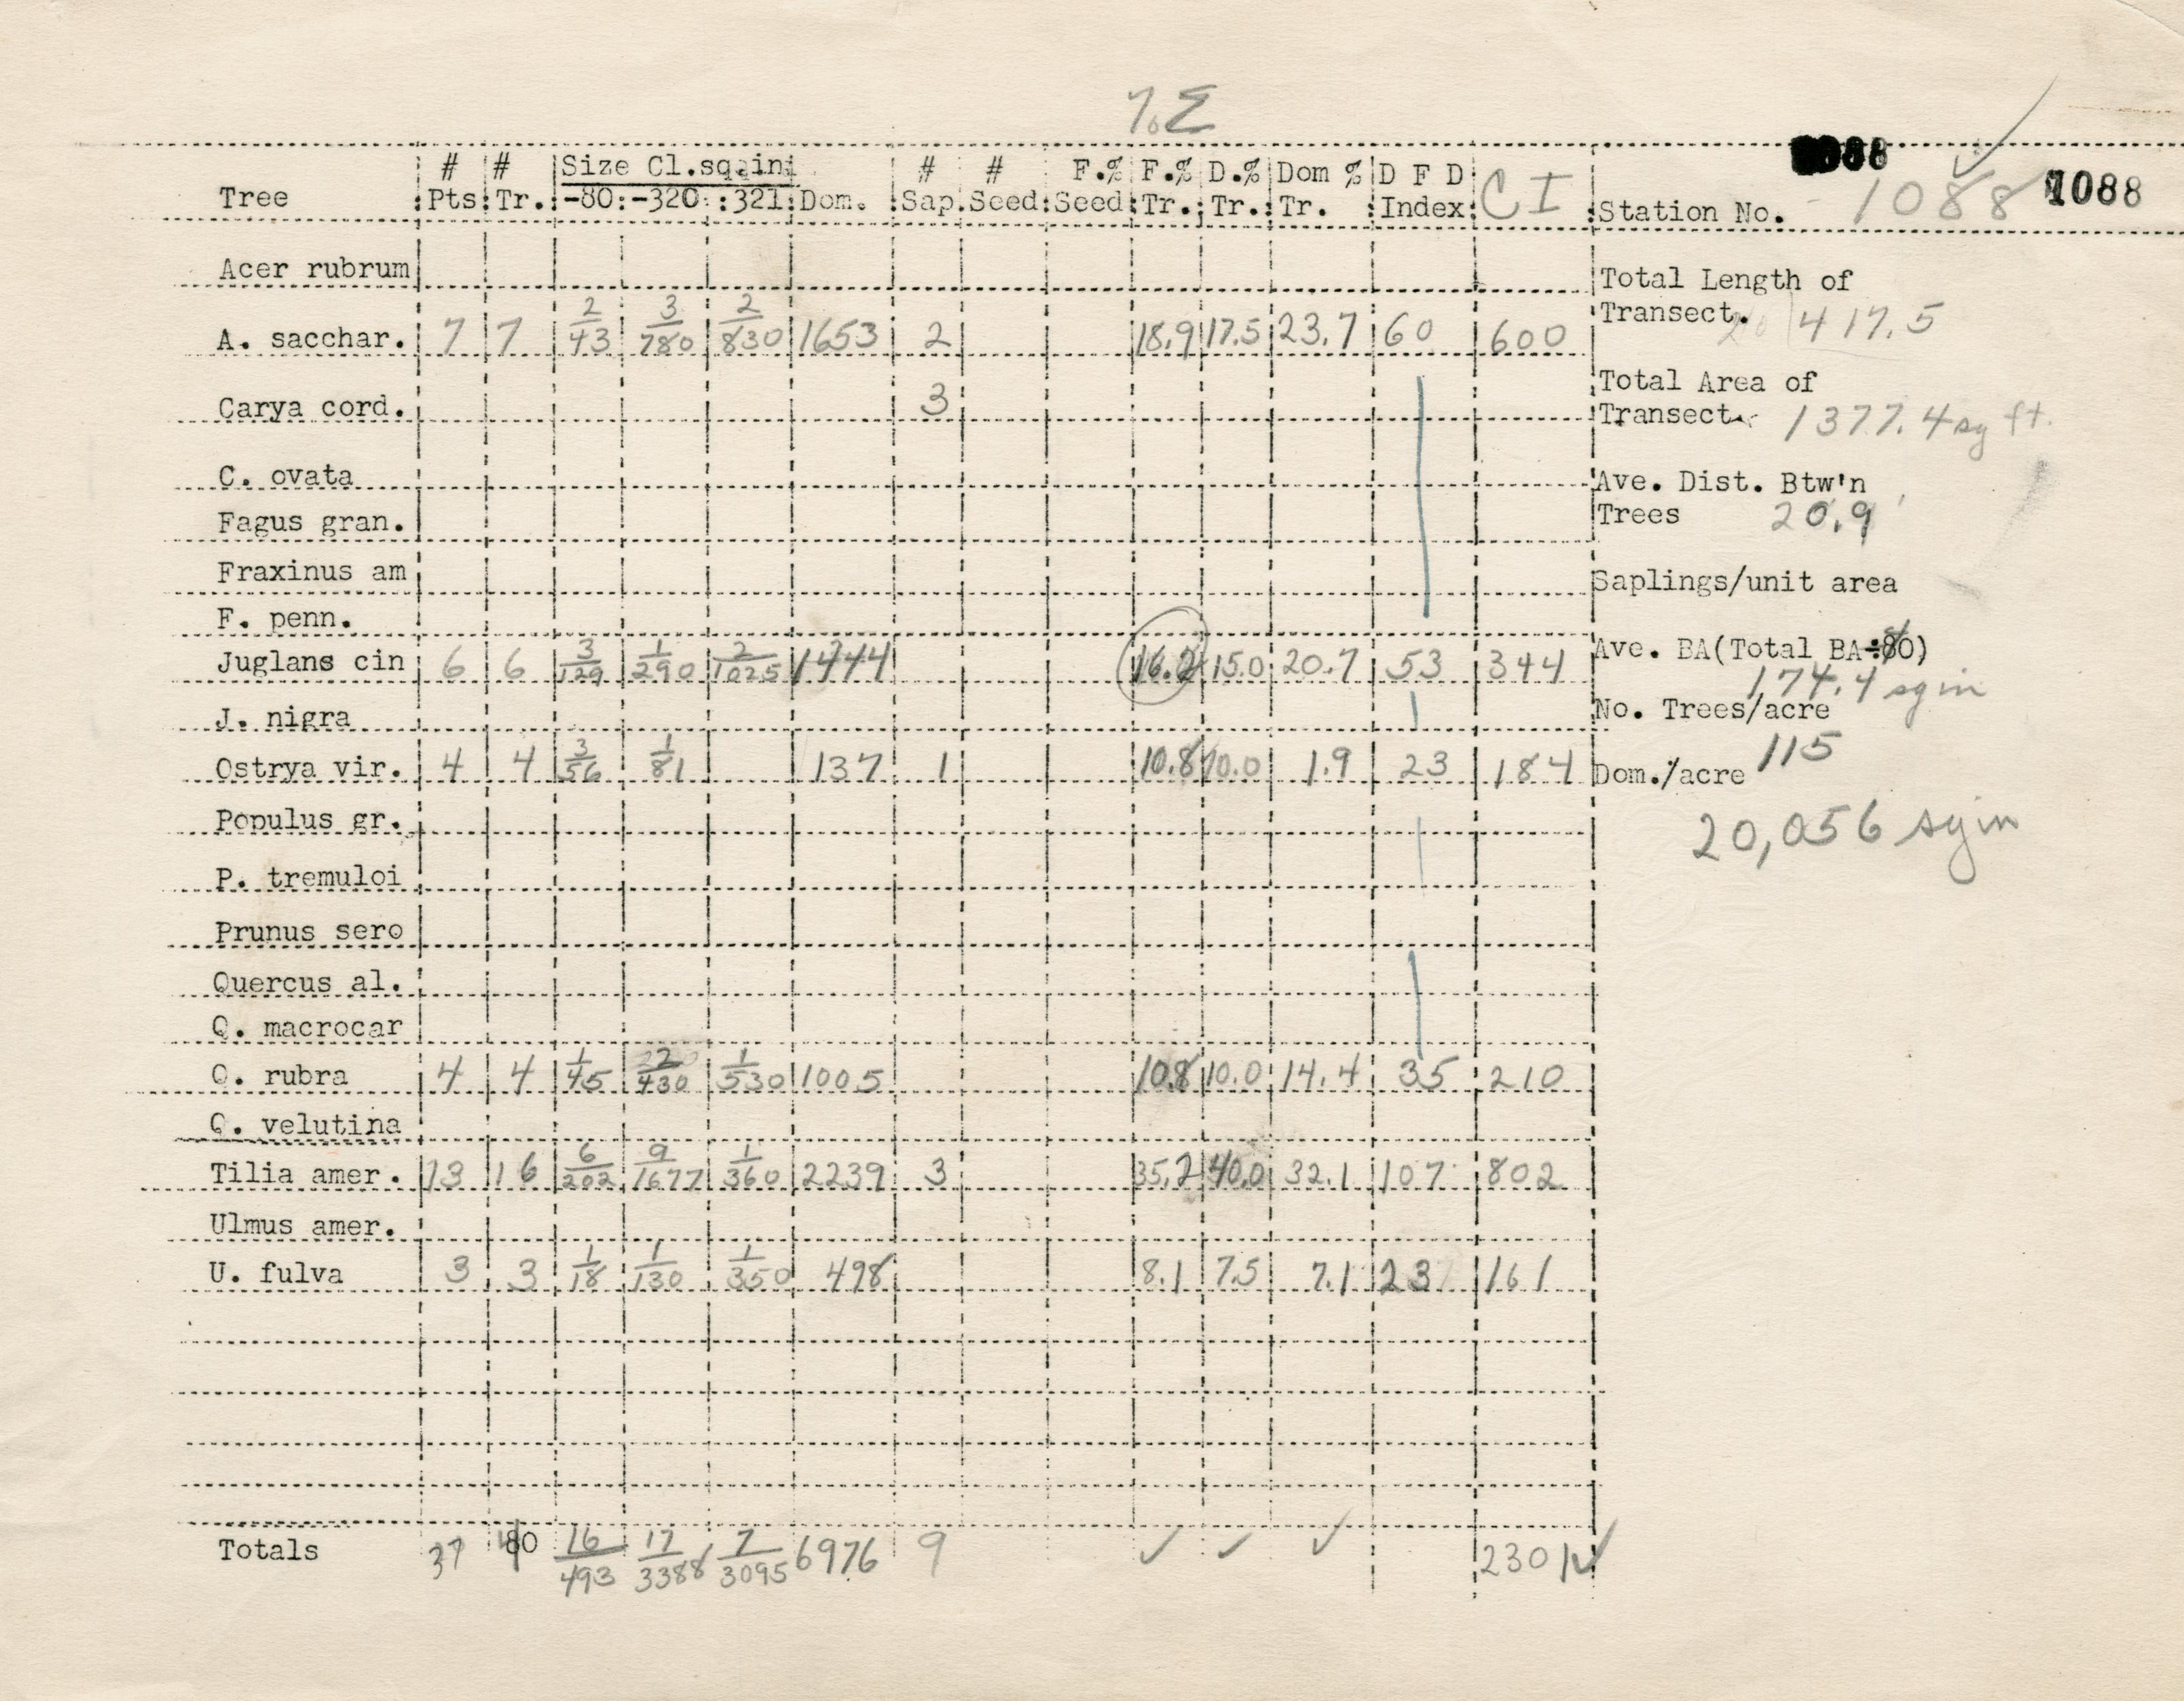 % Σ
# # Size Cl.sqaini # # F.% F.% D.% Dom % D F D 1088
Tree Pts Tr. -80 -320 321 Dom. Sap. Seed Seed Tr. Tr. Tr. Index CI Station No. 1088 1088
Acer rubrum
A. sacchar. 7 7 2/43 3/780 2/830 1653 2 18.9 17.5 23.7 60 600
Carya cord. 3
C. ovata
Fagus gran.
Fraxinus am
F. penn.
Juglans cin 6 6 3/129 1/290 2/1025 1444 16.2 15.0 20.7 53 344
J. nigra
Ostrya vir. 4 4 3/56 1/81 137 1 10.8 10.0 1.9 23 184
Populus gr.
P. tremuloi
Prunus sero
Quercus al.
Q. macrocar
Q. rubra 4 4 1/45 2/430 1/530 1005 10.8 10.0 14.4 35 210
Q. velutina
Tilia amer. 13 16 6/202 9/1677 1/360 2239 3 35.2 40.0 32.1 107 802
Ulmus amer.
U. fulva 3 3 1/18 1/130 1/350 498 8.1 7.5 7.1 23 161
Totals 37 40 16/493 17/3388 7/3095 6976 9 ✓ ✓ ✓ 2301 ✓
Total Length of
Transect. 417.5
Total Area of
Transect. 1377.4 sq ft.
Ave. Dist. Btw'n
Trees 20.9
Saplings/unit area
Ave. BA(Total BA÷80)
174.4 sq in
No. Trees/acre
115
Dom./acre
20,056 sq in